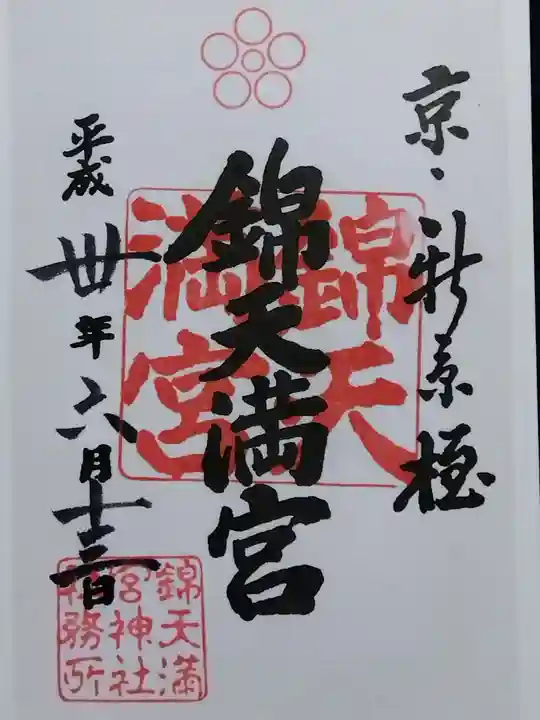 京・新京極
錦天満宮
錦天
満宮
平成卅年六月十三日
錦天満
宮神社
社務所